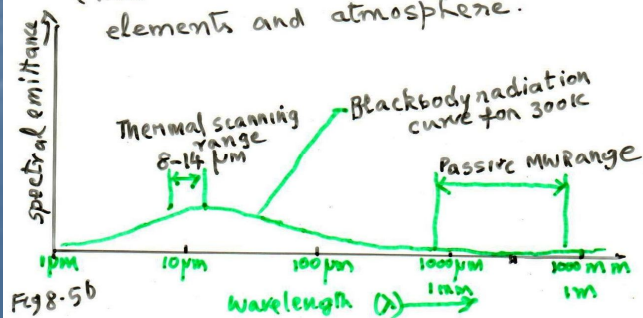 elements and atmosphere.
spectral emittance
Thermal scanning
range
8-14 μm
Blackbody radiation
curve for 300K
Passive MW Range
1μm
10μm
100μm
1000μm
1mm
1000 mm
1m
Fig 8.5b
wavelength (λ)